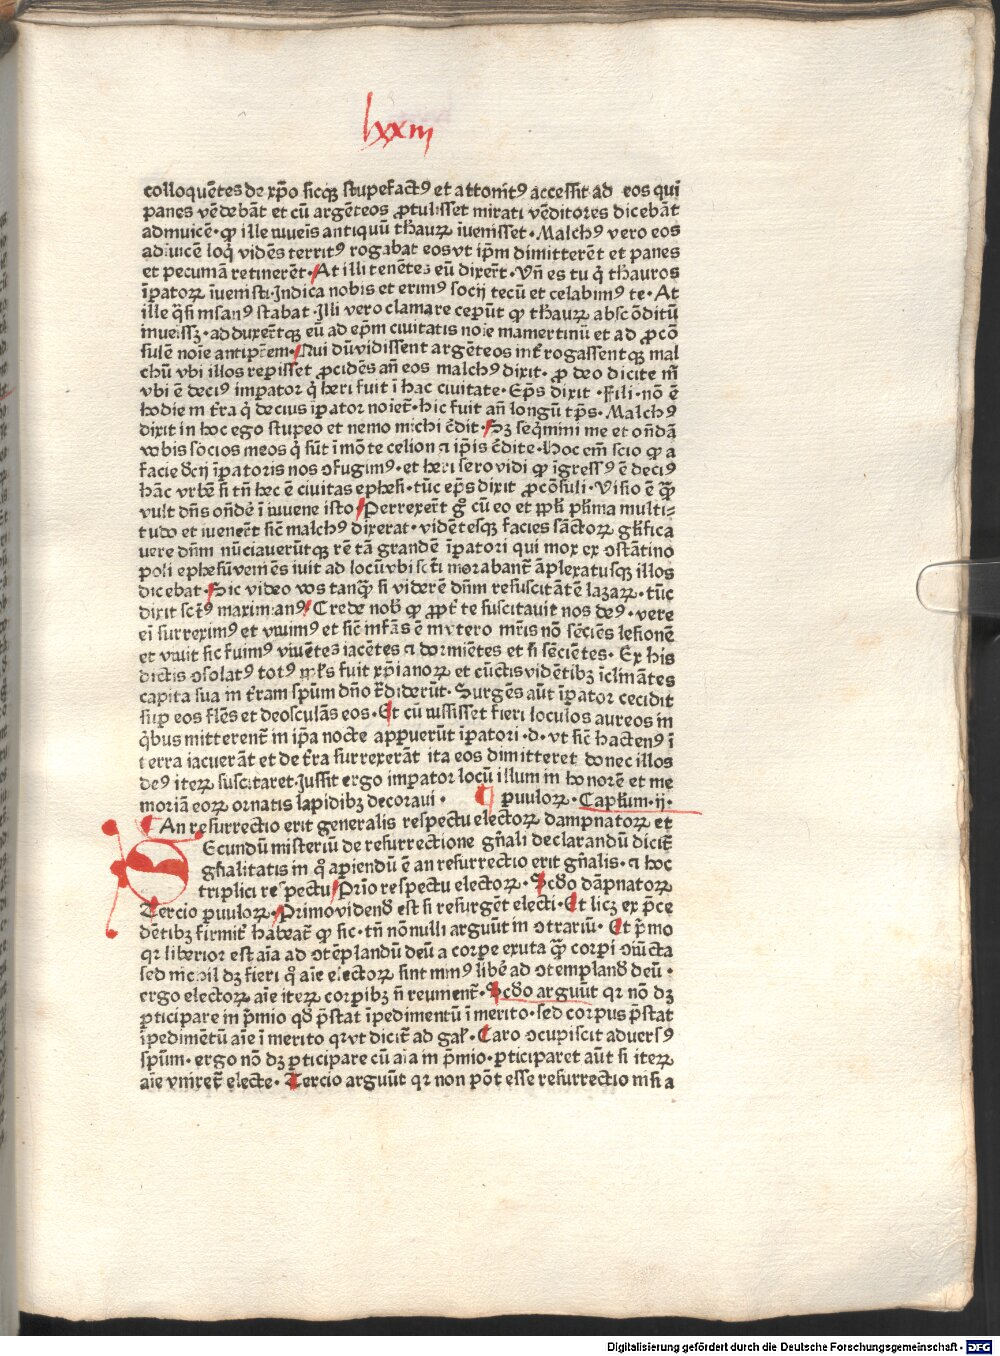 lxxiii
colloquẽtes de xp̃o sicqʒ stupefactꝰ et attonitꝰ accessit ad eos qui
panes vẽdebãt et cũ argẽteos ꝓtulisset mirati vẽditores dicebãt
adinuicẽ · ꝙ ille iuueĩs antiquũ thauꝝ iuenisset · Malchꝰ vero eos
adinicẽ loq̃ vidẽs territꝰ rogabat eos vt ip̃m dimitterẽt et panes
et pecuniã retinerẽt · At illi tenẽtes eũ dixerẽt · Vñ es tu q̇ thauros
ĩpatoꝝ ĩuenisti · Indica nobis et erimꝰ socij tecũ et celabimꝰ te · At
ille q̃si insanꝰ stabat · Illi vero clamare ceperũt ꝙ thauꝝ abscõditũ
inueissʒ · adduxerẽtqʒ eũ ad ep̃m ciuitatis noĩe mamertinũ et ad ꝓcõ
sulẽ noĩe antipatem · Qui dũ vidissent argẽteos int̃rogassentqʒ mal
chũ vbi illos reperisset ꝓcidẽs añ eos malchꝰ dixit · ꝓ deo dicite m̃
vbi ẽ deciꝰ imꝑator q̇ heri fuit ĩ hac ciuitate · Ep̃s dixit · Fili · nõ ẽ
hodie in t̃ra q̇ decius ĩꝑator noĩet · hic fuit añ longũ tp̃s · Malchꝰ
dixit in hoc ego stupeo et nemo michi c̃dit · Sʒ seq̃mini me et on̄dã
vobis socios meos q̇ sũt ĩ mõte celion ⁊ ip̃is c̃dite · Hoc em̃ scio ꝙ a
facie decij ĩꝑatoris nos ↄfugimꝰ · et heri sero vidi ꝙ ĩgressꝰ ẽ deciꝰ
hãc vrbẽ si tñ hec ẽ ciuitas ephesi · tũc ep̃s dixit ꝓcõsuli · Visio ẽ quã
vult dñs on̄dẽ ĩ iuuene isto · Perrexerẽt g̊ cũ eo et pp̃li pl̃ima multi⸗
tudo et iuenerẽt sic̃ malchꝰ dixerat · vidẽtesqʒ facies sãctoꝝ gl̃ifica
uere dñm nũciauerũtqʒ rẽ tã grandẽ ĩꝑatori qui mox ex ↄstãtino
poli ephesũ veniẽs iuit ad locũ vbi sc̃ti morabant̃ ãplexatusqʒ illos
dicebat · Sic video vos tanquã si viderẽ dñm resuscitãtẽ lazaꝝ · tũc
dixit sc̃tꝰ maximianꝰ · Crede nob̃ ꝙ ꝓpt̃ te suscitauit nos deꝰ · vere
em̃ surreximꝰ et viuimꝰ et sic̃ infãs ẽ in vtero mr̃is nõ sẽciẽs lesionẽ
et viuit sic fuimꝰ viuẽtes iacẽtes ⁊ dormiẽtes et ñ sẽciẽtes · Ex his
dictis ↄsolatꝰ totꝰ pl̃s fuit xp̃ianoꝝ et cũctis vidẽtibʒ ĩclinãtes
capita sua in t̃ram sp̃um dño r̃diderũt · Surgẽs aũt ĩꝑator cecidit
sup eos flẽs et deosculãs eos · Et cũ iussisset fieri loculos aureos in
q̇bus mitterent̃ in ip̃a nocte apꝑuerũt ĩꝑatori · d · vt sic̃ hactenꝰ ĩ
terra iacuerãt et de t̃ra surrexerãt ita eos dimitteret donec illos
deꝰ iteꝝ suscitaret · Iussit ergo imꝑator locũ illum in honorẽ et me
moriã eoꝝ ornatis lapidibʒ decorari · ¶ puuloꝝ · Capl̃um · ij ·
¶ An resurrectio erit generalis respectu electoꝝ dampnatoꝝ et
Secundũ misteriũ de resurrectione gñali declarandũ dicit̃
gñalitatis in q̊ apiendũ ẽ an resurrectio erit gñalis · ⁊ hoc
triplici respectu · Prĩo respectu electoꝝ · Scd̃o dãpnatoꝝ
Tercio puuloꝝ · Primo vidend̃ est si resurgẽt electi · Et licʒ ex p̃ce
dẽtibʒ firmit̃ habeat̃ ꝙ sic · tñ nõnulli arguũt in ↄtrariũ · Et p̃mo
qꝛ liberior est aĩa ad ↄtẽplandũ deũ a corꝑe exuta quã corꝑi ↄiũcta
sed nichil dʒ fieri q̊ aĩe electoꝝ sint minꝰ libẽ ad ↄtempland̃ deũ ·
ergo electoꝝ aĩe iteꝝ corꝑibʒ ñ reuniẽt̃ · Scd̃o arguũt qꝛ nõ dʒ
ꝑticipare in p̃mio qd̃ p̃stat ĩpedimentũ ĩ merito · sed corpus p̃stat
ĩpedimẽtũ aĩe ĩ merito qꝛ vt dicit̃ ad gal̃ · Caro ↄcupiscit aduersꝰ
sp̃um · ergo nõ dʒ ꝑticipare cũ aĩa in p̃mio · ꝑticiparet aũt si iteꝝ
aĩe vniret̃ electe · Tercio arguũt qꝛ non põt esse resurrectio nisi a
Digitalisierung gefördert durch die Deutsche Forschungsgemeinschaft - DFG